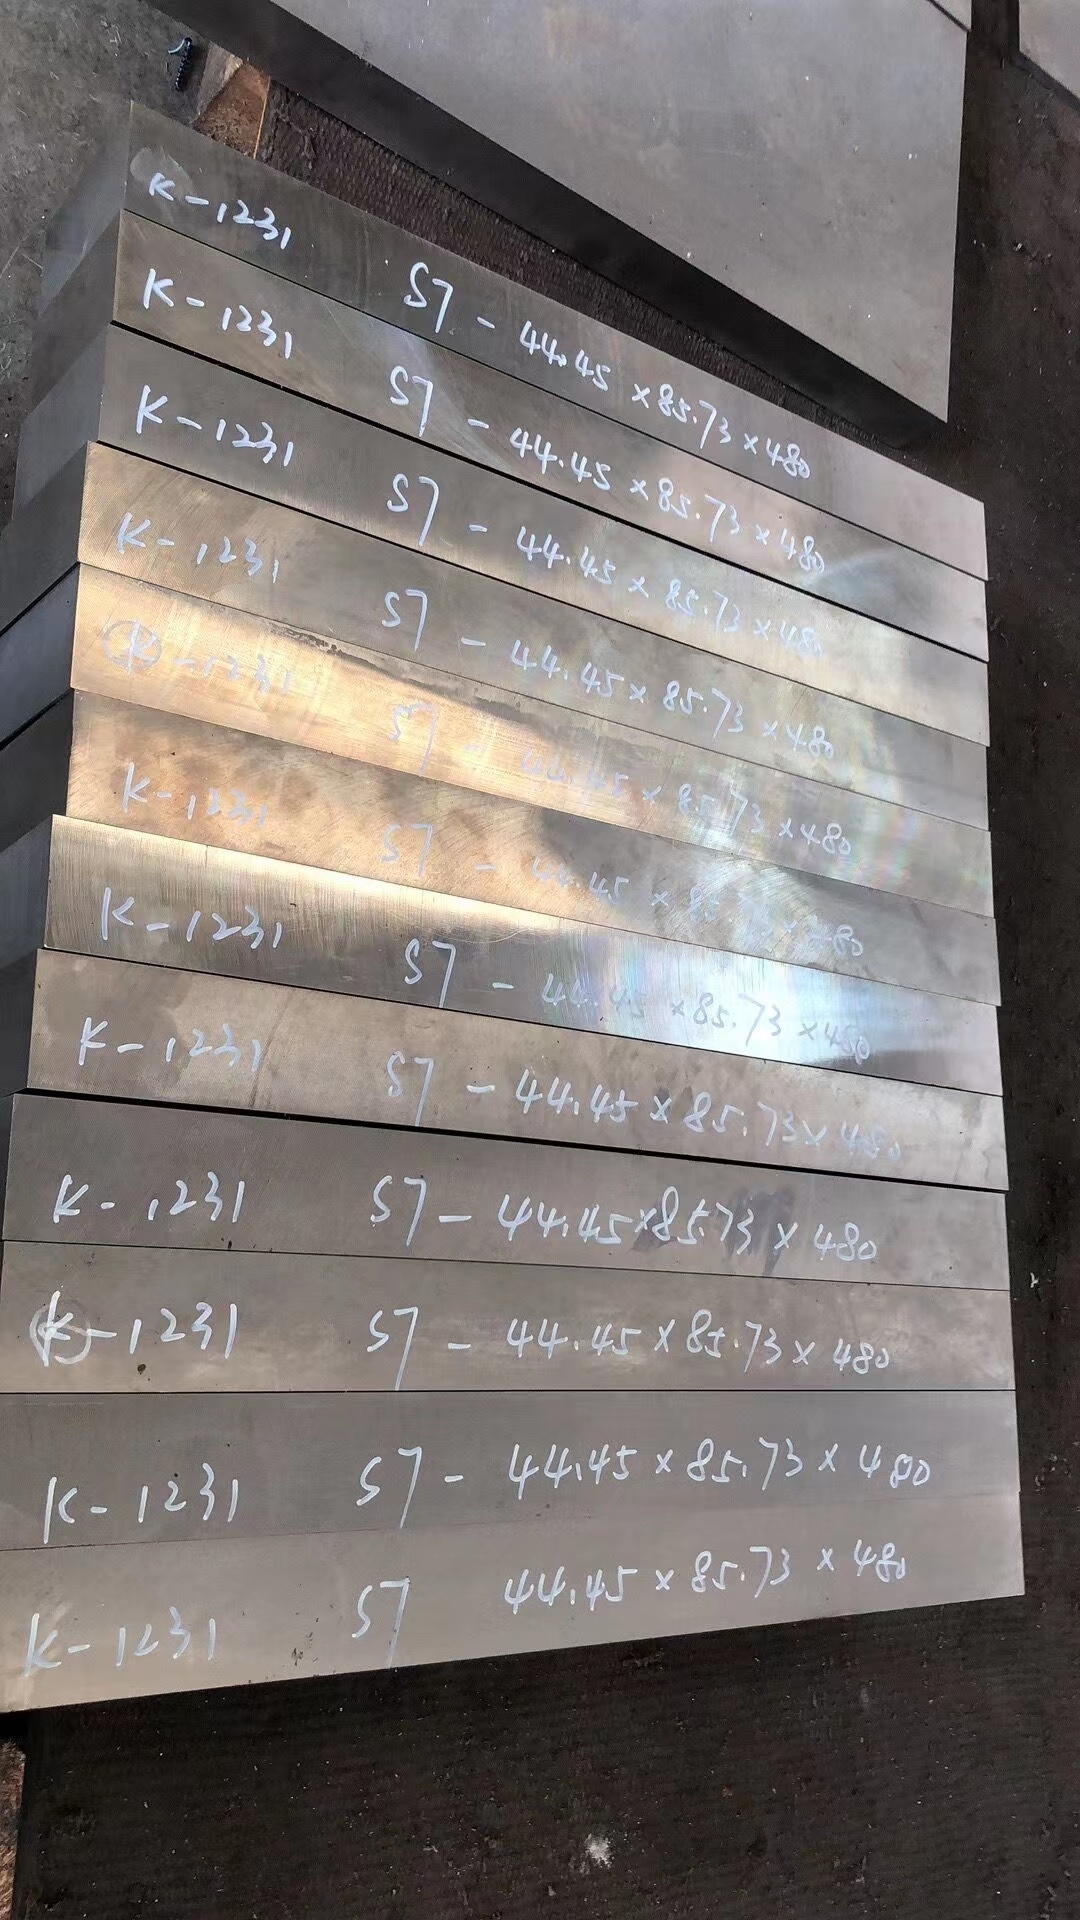 K-1231 S7 - 44.45 x 85.73 x 480
K-1231 S7 - 44.45 x 85.73 x 480
K-1231 S7 - 44.45 x 85.73 x 480
K-1231 S7 - 44.45 x 85.73 x 480
K-1231 S7 - 44.45 x 85.73 x 480
K-1231 S7 - 44.45 x 85.73 x 480
K-1231 S7 - 44.45 x 85.73 x 480
K-1231 S7 - 44.45 x 85.73 x 480
K-1231 S7 - 44.45 x 85.73 x 480
K-1231 S7 - 44.45 x 85.73 x 480
K-1231 S7 - 44.45 x 85.73 x 480
K-1231 S7 44.45 x 85.73 x 480